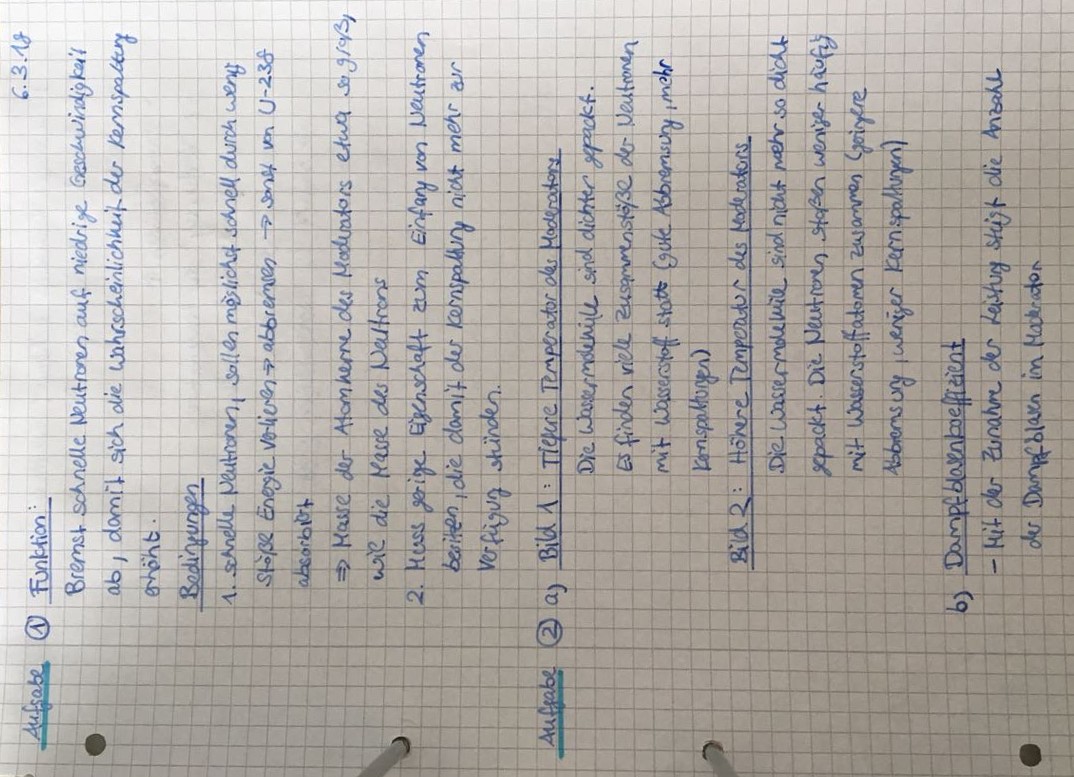 6.3.18
Aufgabe ① Funktion:
Bremst schnelle Neutronen auf niedrige Geschwindigkeit
ab, damit sich die Wahrscheinlichkeit der Kernspaltung
erhöht.
Bedingungen
1. schnelle Neutronen, sollen möglichst schnell durch wenig
Stöße Energie verlieren → abbremsen → sonst von U-238
absorbiert
⇒ Masse der Atomkerne des Moderators etwa so groß,
wie die Masse des Neutrons
2. Muss gerige Eigenschaft zum Einfang von Neutronen
besitzen, die damit der Kernspaltung nicht mehr zur
Verfügug stünden.
Aufgabe ② a) Bild 1: Tiefere Temperatur des Moderators
Die Wassermoleküle sind dichter gepackt.
Es finden viele Zusammenstöße der Neutronen
mit Wasserstoff statt (gute Abbremsung, mehr
Kernspaltungen)
Bild 2: Höhere Temperatur des Moderators
Die Wassermoleküle sind nicht mehr so dicht
gepackt. Die Neutronen stoßen weniger häufig
mit Wasserstoffatomen zusammen (geringere
Abbremsung weniger Kernspaltungen)
b) Dampfblasenkoeffizient
- Mit der Zunahme der Leistung steigt die Anzahl
der Dampfblasen im Moderator